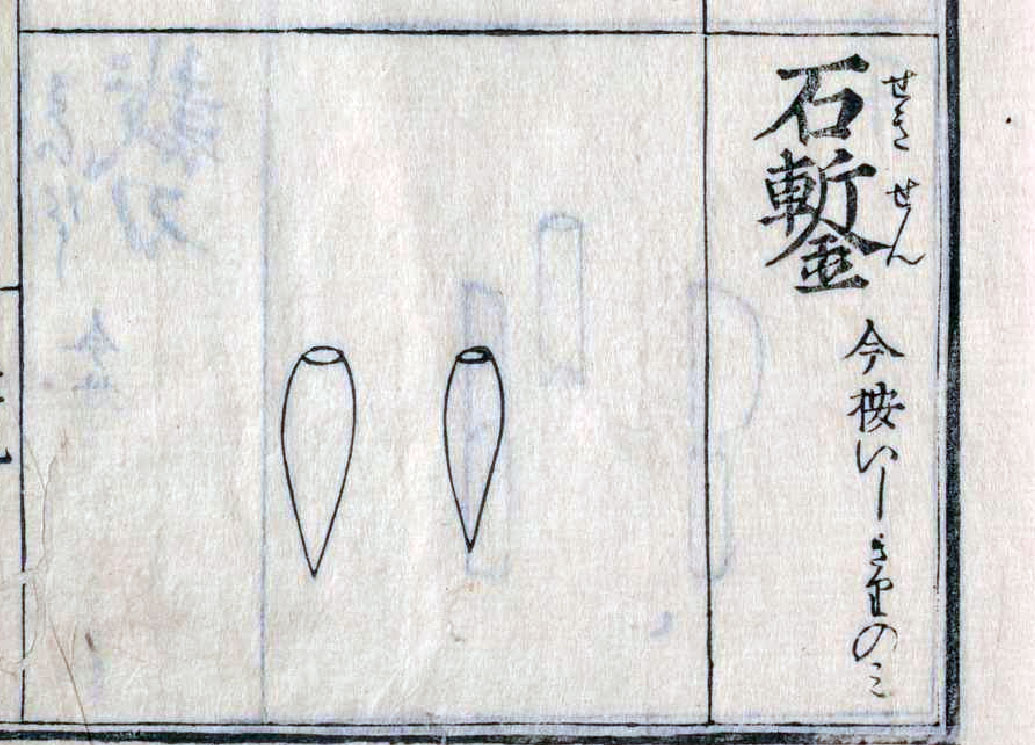 石鏨
せきせん
今按いしきりのみ